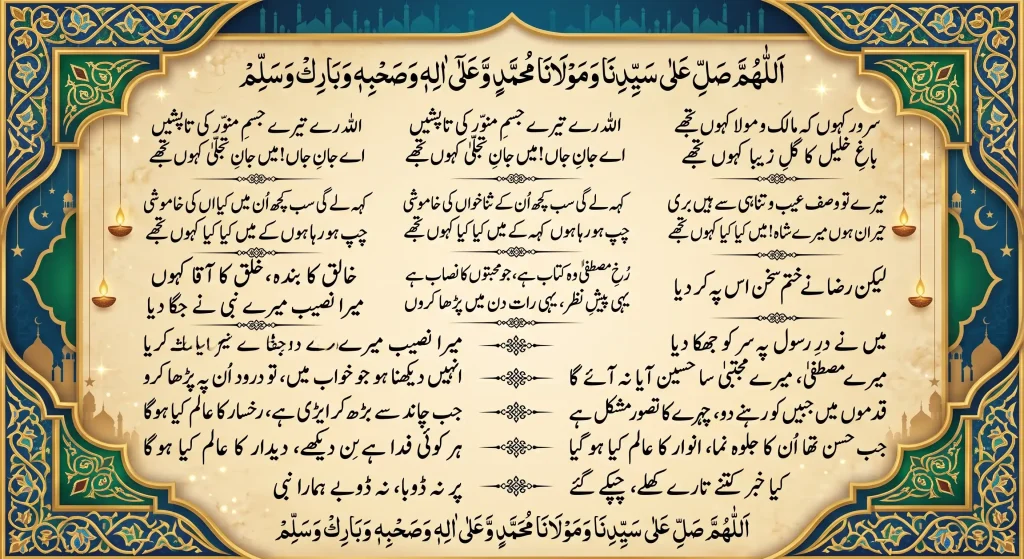 اَللّٰهُمَّ صَلِّ عَلٰى سَيِّدِنَا وَمَوْلَانَا مُحَمَّدٍ وَّعَلٰٓى اٰلِهٖ وَصَحْبِهٖ وَبَارِكْ وَسَلِّمْ
سرور کہوں کہ مالک و مولا کہوں تجھے
باغِ خلیل کا گلِ زیبا کہوں تجھے
اللہ رے تیرے جسمِ منوّر کی تابشیں
اے جانِ جاں! میں جانِ تجلّیٰ کہوں تجھے
اللہ رے تیرے جسمِ منوّر کی تاپشیں
اے جانِ جاں! میں جانِ تجلّیٰ کہوں تجھے
تیرے تو وصف عیب و تناہی سے ہیں بری
حیران ہوں میرے شاہ! میں کیا کیا کہوں تجھے
کہہ لے گی سب کچھ اُن کے ثناخواں کی خاموشی
چپ ہو رہا ہوں کہہ کے میں کیا کیا کہوں تجھے
کہہ لے گی سب کچھ اُن میں کیا اں کی خاموشی
چپ ہو رہا ہوں کے میں کیا کیا کہوں تجھے
لیکن رضا نے ختم سخن اس پہ کر دیا
رُخِ مصطفیٰ وہ کتاب ہے، جو محبتوں کا نصاب ہے
یہی پیشِ نظر، یہی رات دن میں پڑھا کروں
خالق کا بندہ، خلق کا آقا کہوں
میرا نصیب میرے نبی نے جگا دیا
میں نے درِ رسول پہ سر کو جھکا دیا
میرا نصیب میرے
میرے مصطفیٰ، میرے مجتبیٰ سا حسین آیا نہ آئے گا
انہیں دیکھنا ہو جو خواب میں، تو درود اُن پہ پڑھا کرو
قدموں میں جبیں کو رہنے دو، چہرے کا تصور مشکل ہے
جب چاند سے بڑھ کر ایڑی ہے، رخسار کا عالم کیا ہوگا
جب حسن تھا اُن کا جلوہ نما، انوار کا عالم کیا ہو گیا
ہر کوئی فدا ہے بِن دیکھے، دیدار کا عالم کیا ہو گا
کیا خبر کتنے تارے کھلے، چھپکے گئے
پر نہ ڈوبا، نہ ڈوبے ہمارا نبی
اَللّٰهُمَّ صَلِّ عَلٰى سَيِّدِنَا وَمَوْلَانَا مُحَمَّدٍ وَّعَلٰٓى اٰلِهٖ وَصَحْبِهٖ وَبَارِكْ وَسَلِّمْ